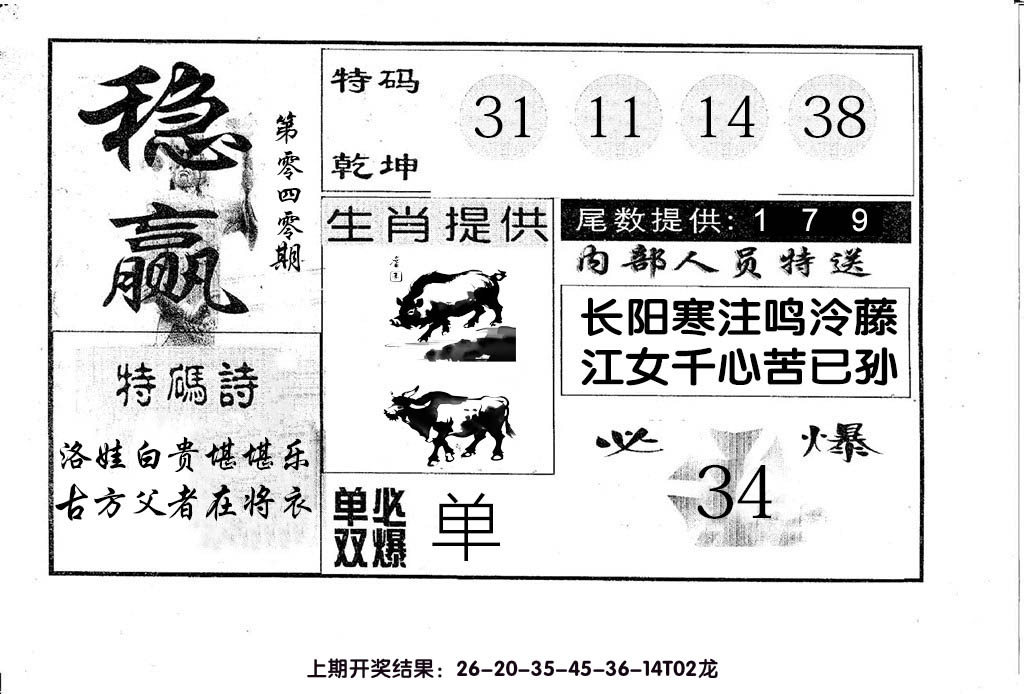 稳赢
第零四零期
特码
乾坤
31 11 14 38
生肖提供
尾数提供: 1 7 9
内部人员特送
长阳寒注鸣泠藤
江女千心苦已孙
特碼詩
洛娃白贵堪堪乐
古方父者在将衣
单双
必爆
单
必爆
34
上期开奖结果：26-20-35-45-36-14T02龙